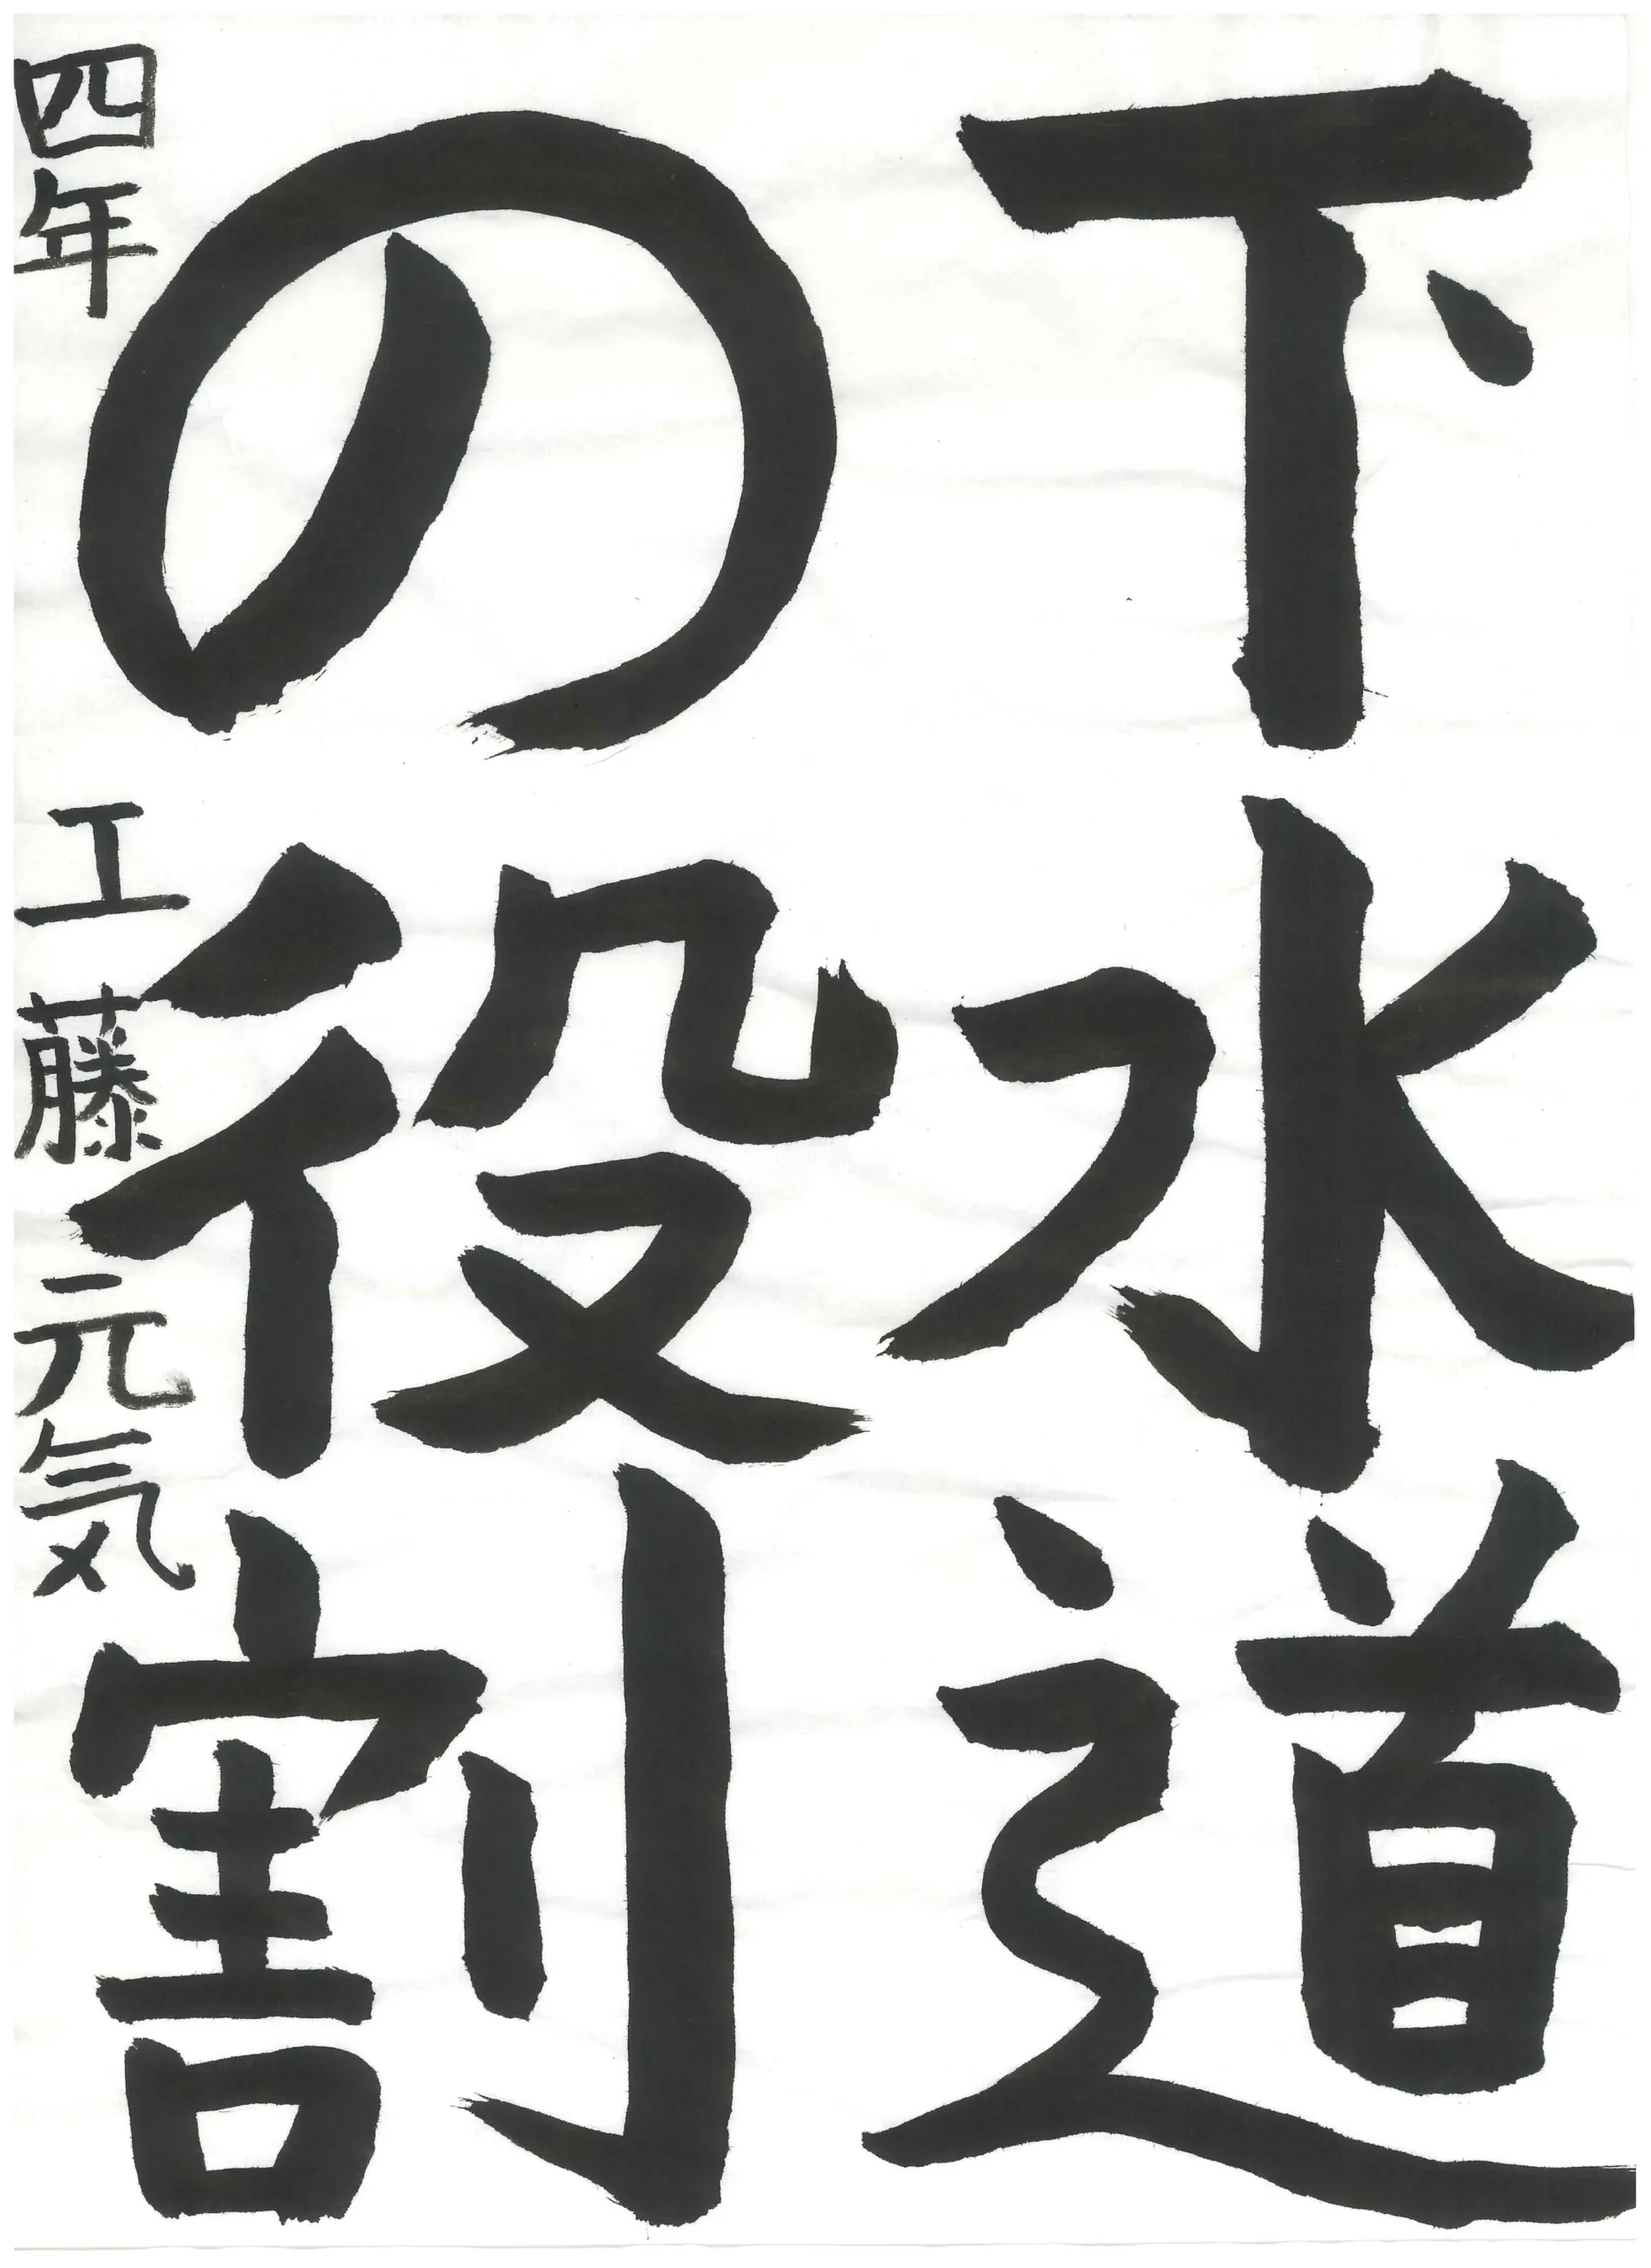 下水道
の役割
四年 工藤元気